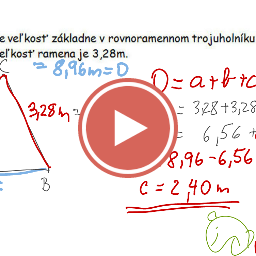 e veľkosť základne v rovnoramennom trojuholníku
eľkosť ramena je 3,28m.
= 8,96m = O
C
O = a+b+c
3,28m =
= 3,28+3,28
= 6,56 +
8,96-6,56
c = 2,40 m
B